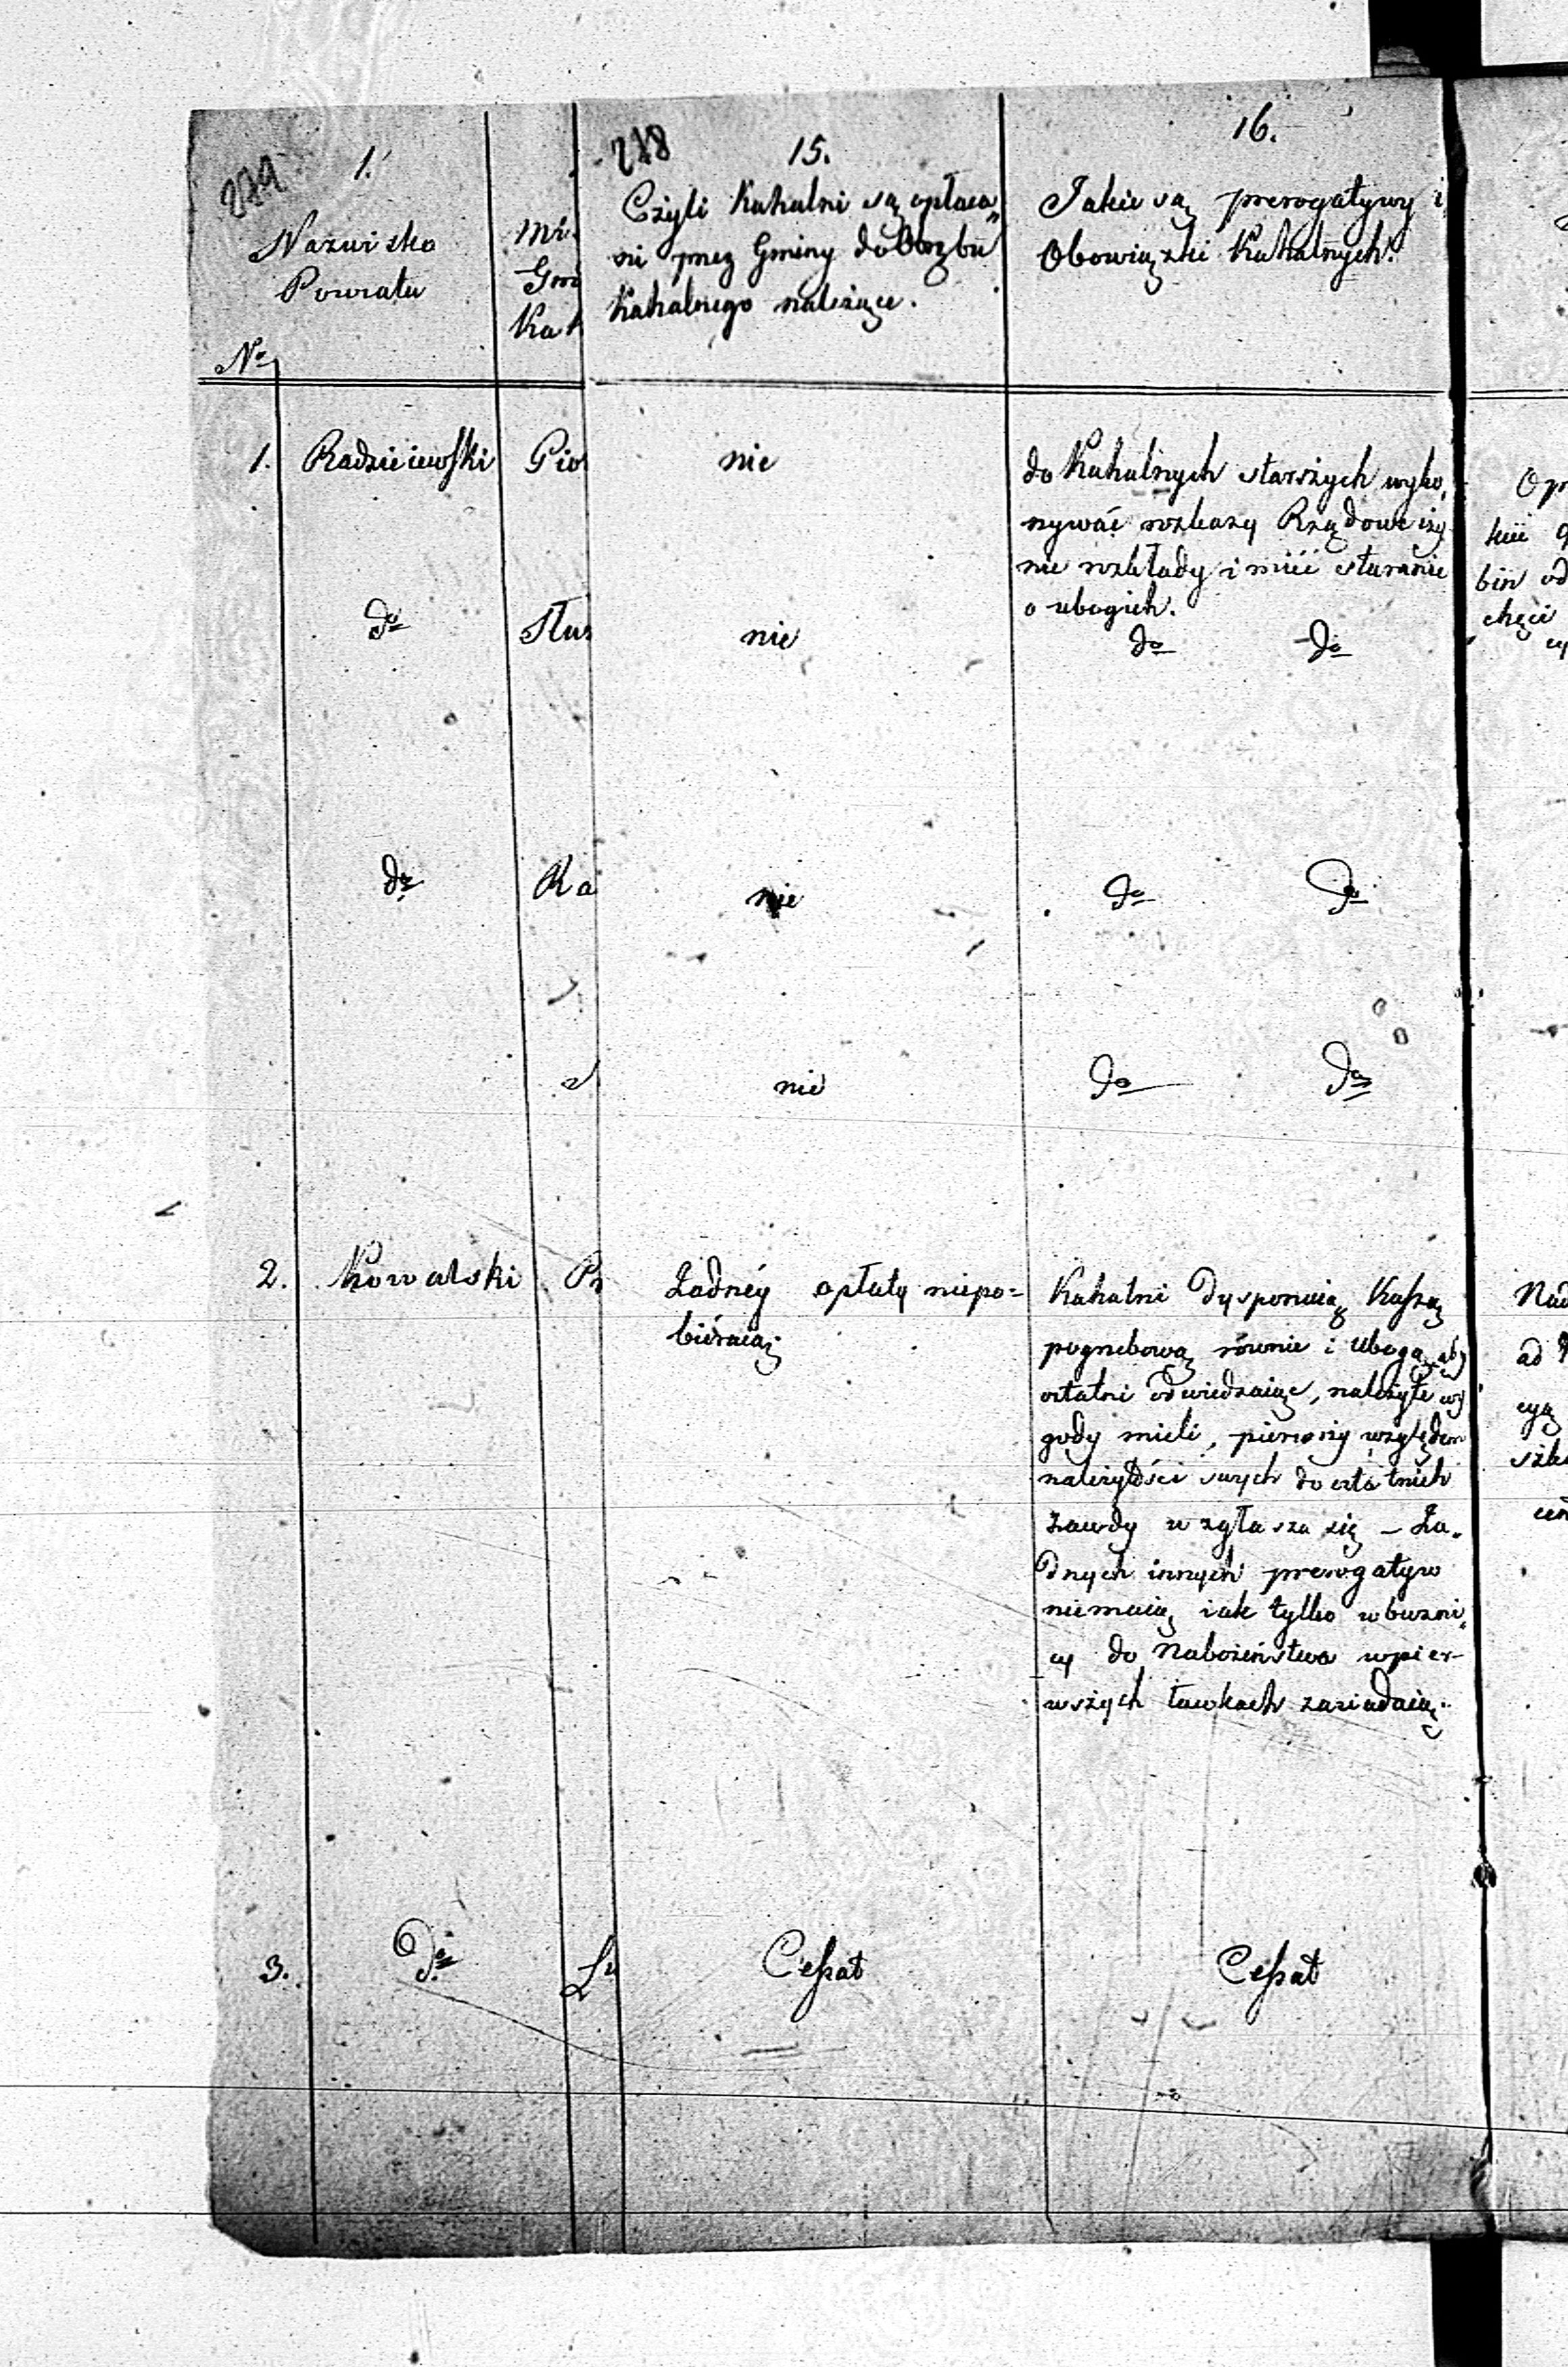 279
1.
Nazwisko
Powiatu
No
Mi
Gmi
Kah
218
15.
Czyli Kahalni są opłaca„
ni przez Gminy do Obrębu
Kahalnego należące.
16.
Jakie są prerogatywy i
Obowiązki Kahalnych?
1. Radzieiewski Pio nie
do Kahalnych starszych wyko„
nywać rozkazy Rządowe czy
nić rozkłady i mieć staranie
o ubogich.
do Służ nie do do
do Ra nie do do
nie do do
2. Kowalski Pr
Żadnéy opłaty niepo=
biéraią
Kahalni dysponuią Kassą
pogrzebową równie i Ubogą, aby
ostatni odwiedzaiąc, należyte wy
gody mieli, pierwszy względem
należytości swych do ostatnich
zawdy w zgłasza się – Ża„
dnych innych prerogatyw
niemaią iak tylko w buzni„
cy do Nabożeństwa w pier-
wszych ławkach zasiadaią.
3. do Lu Cessat Cessat
Op
kiii
bin od
chęci
Nad
ad
cyą